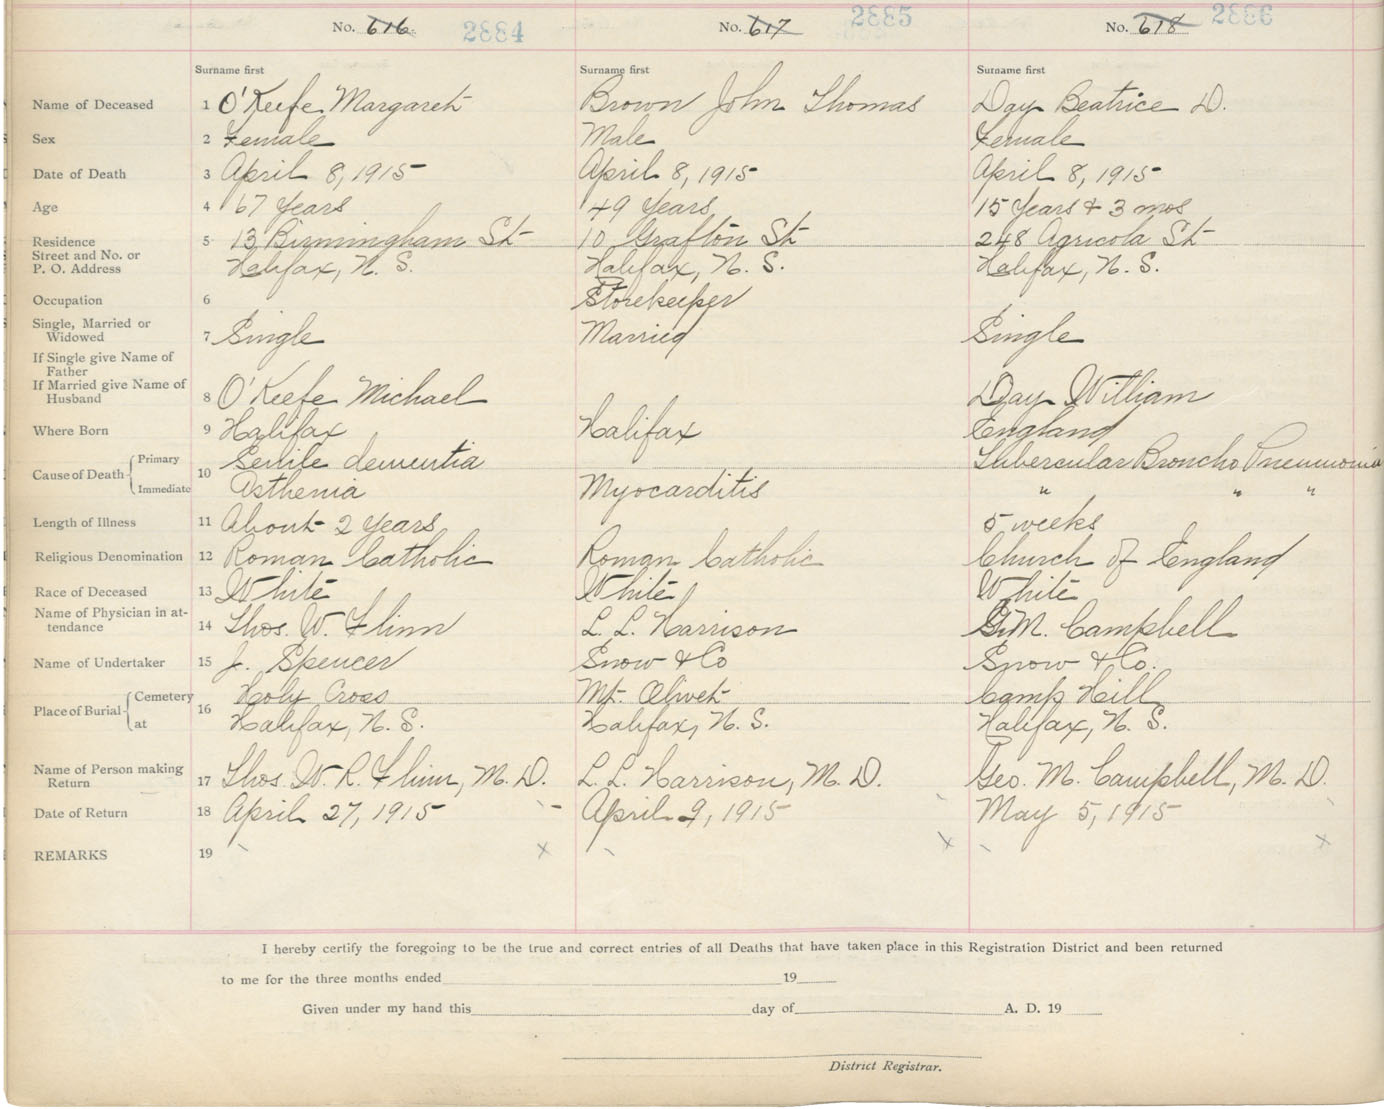 No. 616 2884 No. 617 2885 No. 618 2886
Surname first Surname first Surname first
Name of Deceased 1 O'Keefe Margaret Brown John Thomas Day Beatrice D.
Sex 2 Female Male Female
Date of Death 3 April 8, 1915 April 8, 1915 April 8, 1915
Age 4 67 Years 49 Years 15 Years & 3 mos
Residence 5 13 Birmingham St 10 Grafton St 248 Agricola St
Street and No. or
P. O. Address Halifax, N. S. Halifax, N. S. Halifax, N. S.
Occupation 6 Storekeeper
Single, Married or
Widowed 7 Single Married Single
If Single give Name of
Father
If Married give Name of
Husband 8 O'Keefe Michael Day William
Where Born 9 Halifax Halifax England
Cause of Death 10 Primary Senile dementia Tubercular Broncho Pneumonia
Immediate Asthenia Myocarditis " " "
Length of Illness 11 About 2 years 5 weeks
Religious Denomination 12 Roman Catholic Roman Catholic Church of England
Race of Deceased 13 White White White
Name of Physician in at-
tendance 14 Thos. W. Flinn L. L. Harrison G. M. Campbell
Name of Undertaker 15 J. Spencer Snow & Co Snow & Co.
Place of Burial 16 Cemetery Holy Cross Mt. Olivet Camp Hill
at Halifax, N. S. Halifax, N. S. Halifax, N. S.
Name of Person making
Return 17 Thos. W. R. Flinn, M. D. L. L. Harrison, M. D. Geo. M. Campbell, M. D.
Date of Return 18 April 27, 1915 April 9, 1915 May 5, 1915
REMARKS 19
I hereby certify the foregoing to be the true and correct entries of all Deaths that have taken place in this Registration District and been returned
to me for the three months ended 19
Given under my hand this day of A. D. 19
District Registrar.